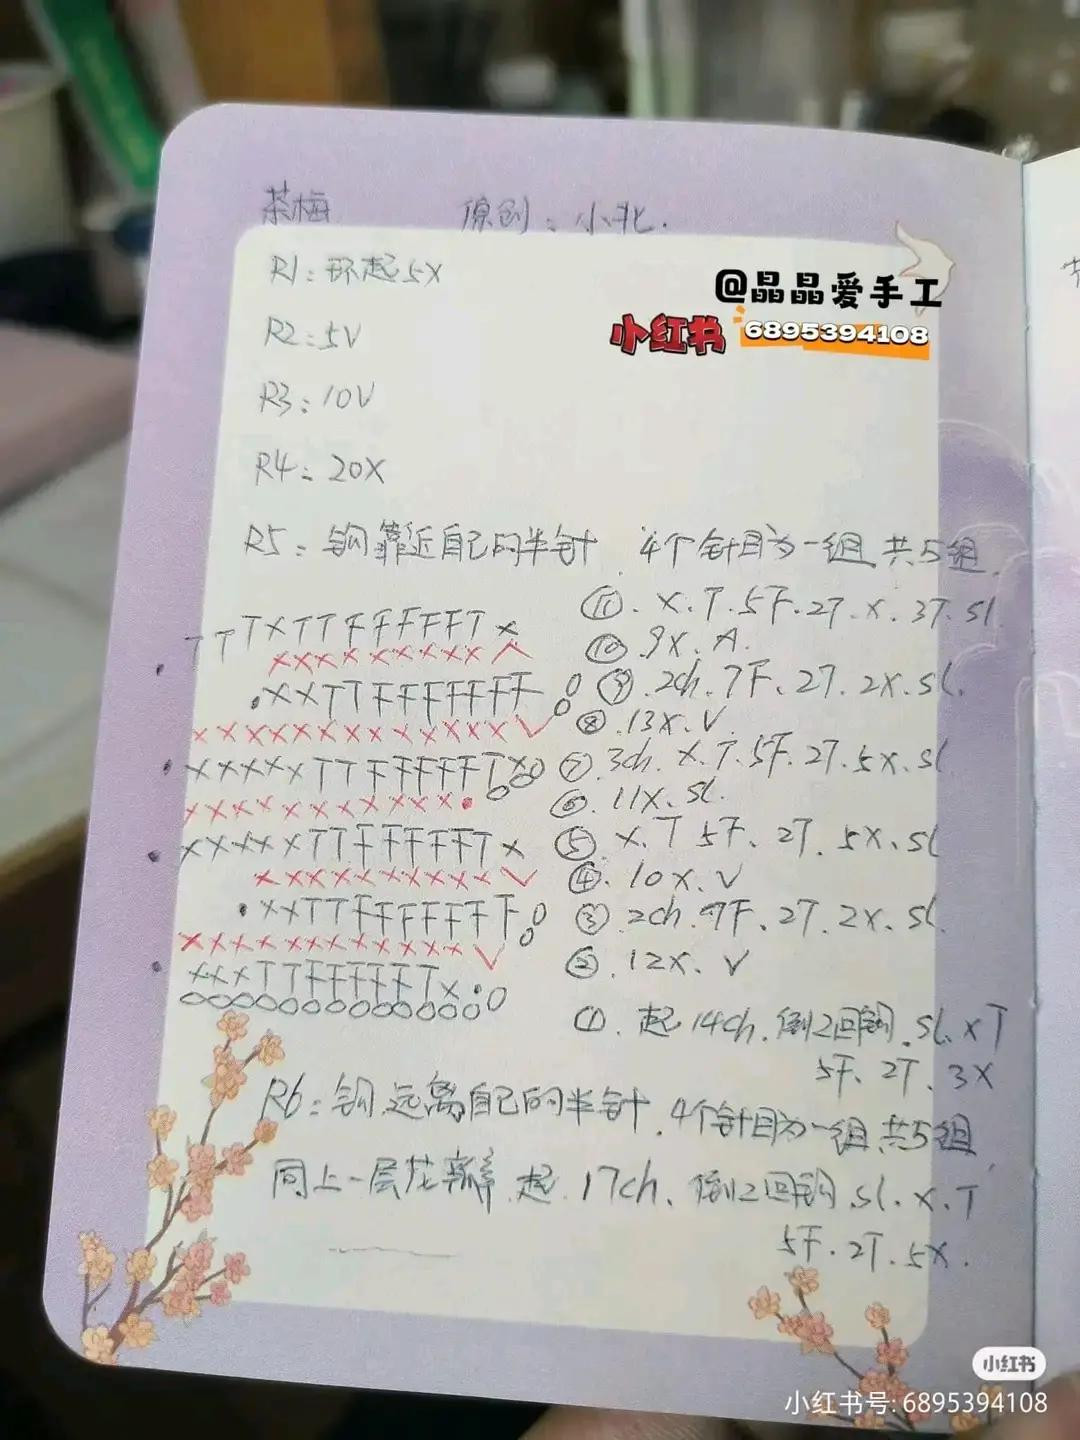 茶梅 原创:小北.
R1:环起5X
@晶晶爱手工
小红书 6895394108
R2:5V
R3:10V
R4:20X
R5:钩靠近自己的半针,4个针目为一组,共5组.
TTTXTTFFFFFFTX
⑪.X.T.5F.2T.X.3T.sl.
XXXXXXXXXA
⑩.9X.A.
.XXTTFFFFFFF
⑨.2ch.7F.2T.2X.sl.
XXXXXXXXXXXXXV
⑧.13X.V.
XXXXXTTFFFFFTX
⑦.3ch.X.T.5F.2T.5X.sl
XXXXXXXXXXX.
⑥.11X.sl.
XXXXXTTFFFFFTX
⑤.X.T 5F.2T.5X.sl
XXXXXXXXXXV
④.10X.V
③.2ch.7F.2T.2X.sl.
XXXXXXXXXXXXV
②.12X.V
XXXTTFFFFFTX.
①.起14ch.倒2回钩.sl.XT
5F.2T.3X
R6:钩远离自己的半针.4个针目为一组,共5组,
同上一层花瓣,起17ch.倒2回钩.sl.X.T
5F.2T.5X.
小红书
小红书号: 6895394108